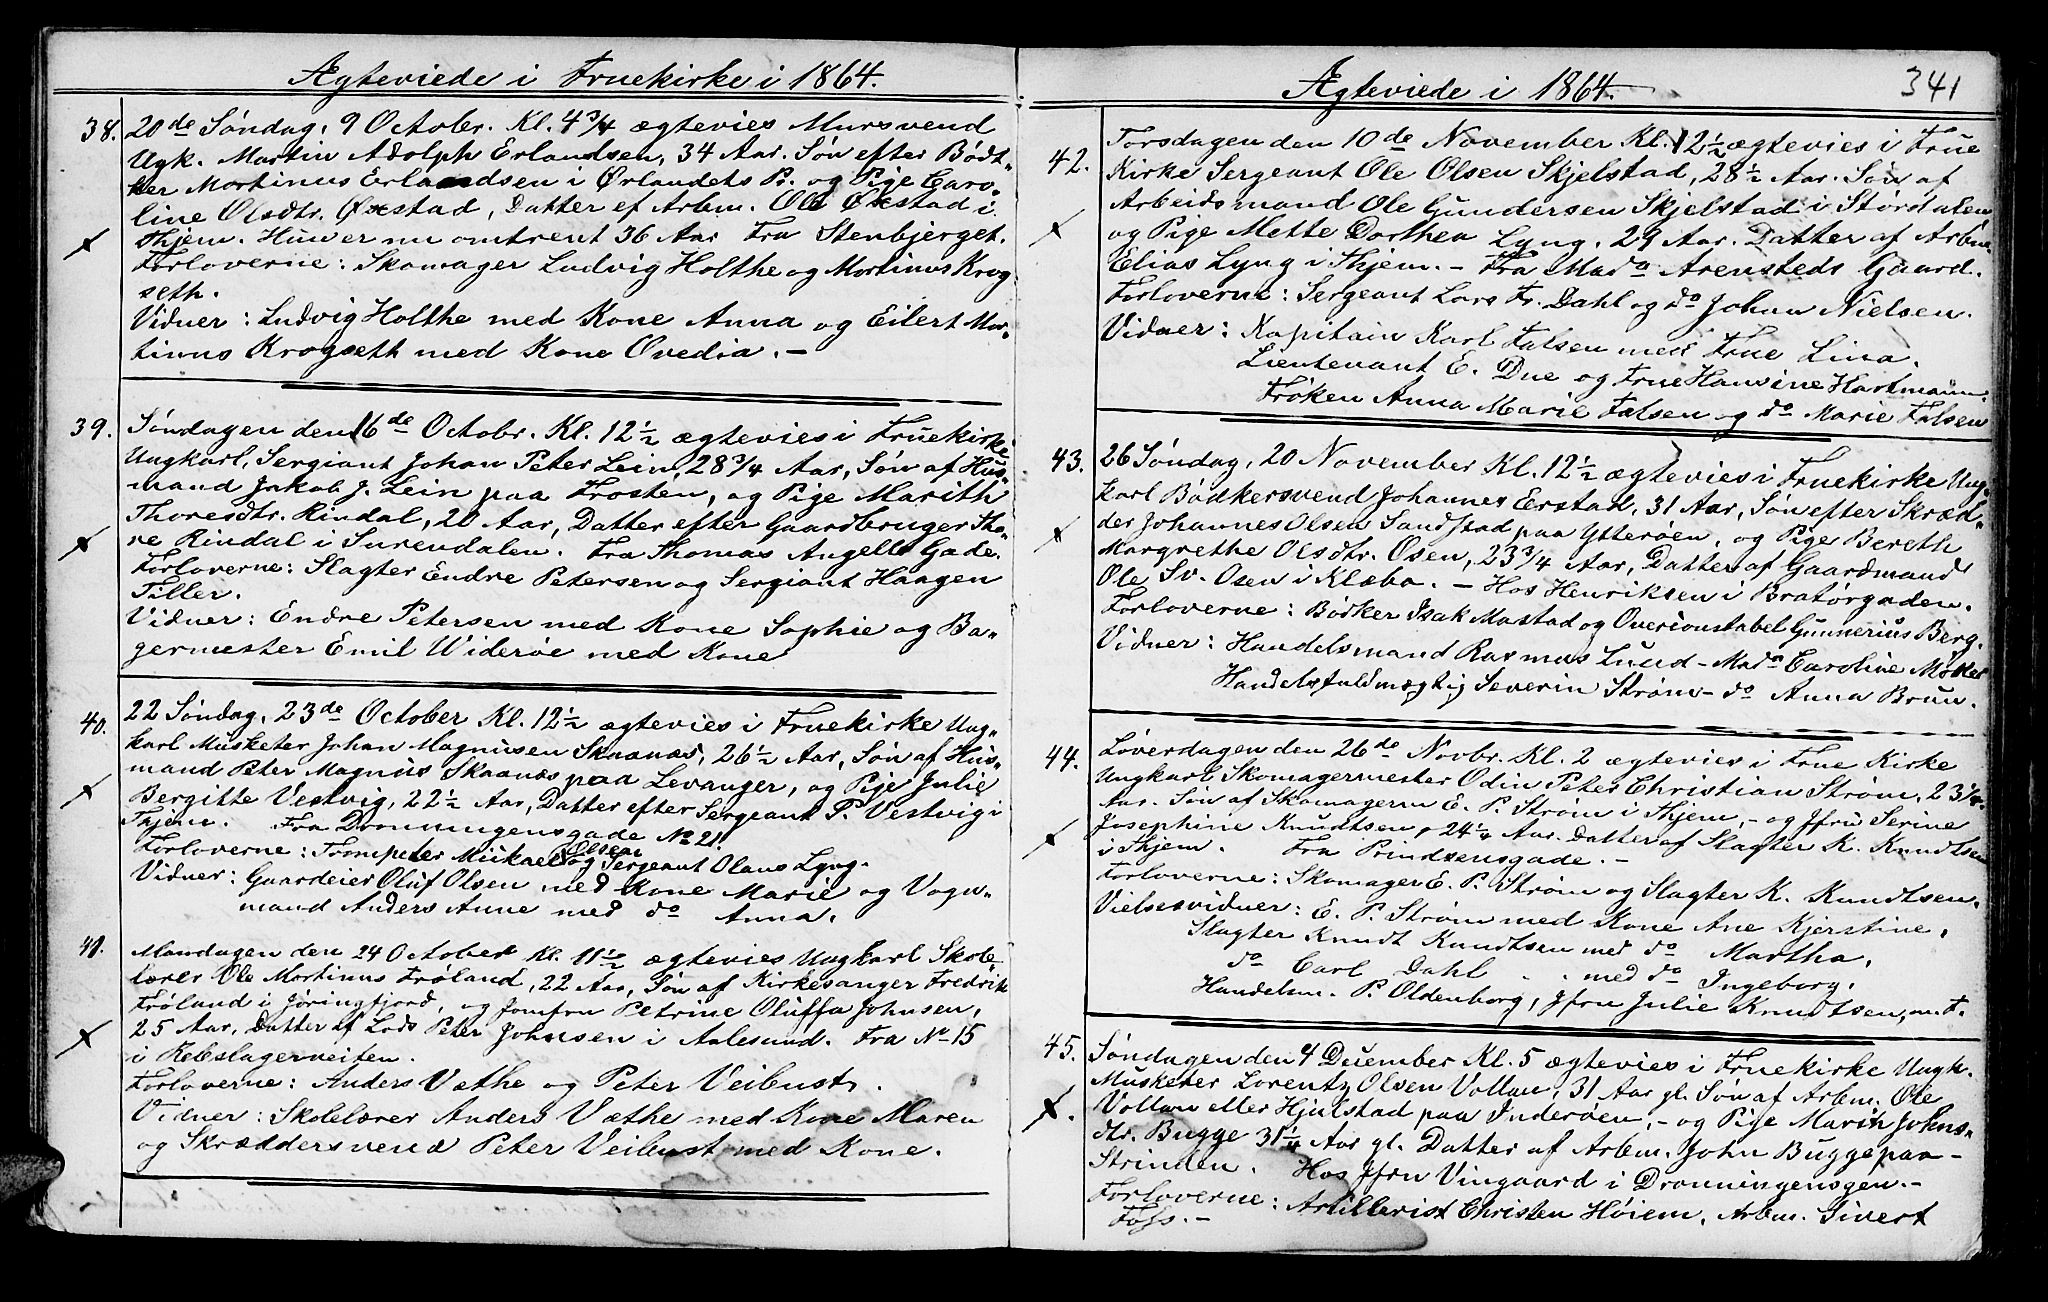 Ægteviede i Fruekirke i 1864.
38. 20de Søndag, 9 Octobr. Kl. 4 3/4 ægtevies Mursvend
Ugk. Martin Adolph Erlandsen, 34 Aar. Søn efter Bødt-
ker Mortinus Erlandsen i Ørlandets Pr. og Pige Caro-
line Olsdtr. Øxstad, Datter ef Arbm. Ole Øxstad i
Thjem. Hun er nu omtrent 36 Aar Fra Stenbjerget.
Forloverne: Skomager Ludvig Holthe og Mortinus Krog
seth.
Vidner: Ludvig Holthe med Kone Anna og Eilert Mor-
tinus Krogseth med Kone Ovedia. -
39. Søndagen den 16de Octobr. Kl. 12 1/2 ægtevies i Fruekirke
Ungkarl, Sergiant Johan Peter Lein, 28 3/4 Aar, Søn af Hus-
mand Jakob J. Lein paa Frosten, og Pige Marith
Thoresdtr. Rindal, 20 Aar, Datter efter Gaardbruger Tho-
re Rindal i Surendalen. Fra Thomas Angells Gade.
Forloverne: Slagter Endre Petersen og Sergiant Haagen
Tiller.
Vidner: Endre Petersen med Kone Sophie og Ba-
germester Emil Widerøe med Kone
40. 22 Søndag, 23de October Kl. 12 1/2 ægtevies i Fruekirke Ung-
karl Musketer Johan Magnusen Skaanes, 26 1/2 Aar, Søn af Hus-
mand Peter Magnus Skaanes paa Levanger, og Pije Julie
Bergitte Vestvig, 22 1/2 Aar, Datter efter Sergeant P. Vestvig i
Thjem. Fra Dronningensgade No 21.
Forloverne: Trompeter Miikael Olsen og Sergeant Olaus Lyng.
Vidner: Gaardeier Oluf Olsen med Kone Marie og Vogn-
mand Anders Anne med do Anna.
41. Mandagen den 24 October Kl. 11 1/2 ægtevies Ungkarl Skole-
lærer Ole Mortinus Frøland, 22 Aar, Søn af Kirkesanger Fredrik
Frøland i Joringfjord, og Jomfru Petrine Oluffa Johnsen,
25 Aar, Datter af Lods Peter Johnsen i Aalesund. Fra No 15
i Rebslagerveiten.
Forloverne: Anders Væthe og Peter Veibust.
Vidner: Skolelærer Anders Væthe med Kone Maren
og Skræddersvend Peter Veibust med Kone.
Ægteviede i 1864. 341
42. Torsdagen den 10de November Kl. 12 1/2 ægtevies i Frue
Kirke Sergeant Ole Olsen Skjelstad, 28 1/2 Aar. Søn af
Arbeidsmand Ole Gundersen Skjelstad i Stordalen
og Pige Mette Dorthea Lyng, 29 Aar. Datter af Arbm.
Elias Lyng i Thjem. - Fra Mado Arensteds Gaard.
Forloverne: Sergeant Lars Fr. Dahl og do Johan Nielsen.
Vidner: Kapitain Karl Falsen med Frue Lina.
Lieutenant E. Due og Frue Hansine Hartmann.
Frøken Anna Marie Falsen og do Marie Falsen
43. 26 Søndag, 20 November Kl. 12 1/2 ægtevies i Fruekirke Ung-
karl Bødkersvend Johannes Erstad, 31 Aar, Søn efter Skræd-
der Johannes Olsen Sandstad paa Ytterøen, og Pige Bereth
Margrethe Olsdtr. Osen, 23 3/4 Aar, Datter af Gaardmand
Ole Sv. Osen i Klæbo. - Hos Henriksen i Bratørgaden.
Forloverne: Bødker Isak Mostad og Overconstabel Gunnerius Berg.
Vidner: Handelsmand Rasmus Lund - Mado Caroline Møller
Handelsfuldmægtig Severin Strøm - do Anna Brun.
44. Løverdagen den 26de Novbr. Kl. 2 ægtevies i Frue Kirke
Ungkarl Skomagermester Odin Peter Christian Strøm, 23 1/4
Aar. Søn af Skomagerm E. P. Strøm i Thjem, - og Jfru Serine
Josephine Knudtsen, 24 1/4 Aar. Datter af Slagter K. Knudtsen
i Thjem. Fra Prindsensgade. -
Forloverne: Skomager E. P. Strøm og Slagter K. Knudtsen.
Vielsesvidner: E. P. Strøm med Kone Ane Kjerstine,
Slagter Knudt Knudtsen med do Martha,
do Carl Dahl med do Ingeborg,
Handelsm. P. Oldenborg, Jfru Julie Knudtsen, m.f.
45. Søndagen den 4 December Kl. 5 ægtevies i Fruekirke Ungk.
Musketer Lorentz Olsen Vollan, 31 Aar gl. Søn af Arbm. Ole
Vollan eller Hjulstad paa Inderøen, - og Pige Marith Johns-
dtr. Bugge 31 1/4 Aar gl. Datter af Arbm. John Bugge paa -
Strinden. Hos Jfru Vingaard i Dronningensgen. -
Forloverne: Artillerist Christen Høiem, Arbm. Sivert
Foss. -